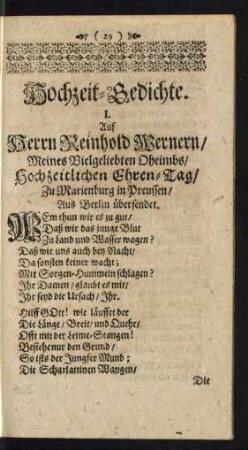 ( 29 )
Hochzeit-Gedichte.
I.
Auf
Herrn Reinhold Wernern/
Meines Vielgeliebten Oheimbs/
Hochzeitlichen Ehren-Tag/
Zu Marienburg in Preussen/
Aus Berlin übersendet.
WEm thun wir es zu gut/
Daß wir das junge Blut
Zu Land und Wasser wagen?
Daß wir uns auch bey Nacht/
Da sonsten keiner wacht;
Mit Sorgen-Hummeln schlagen?
Ihr Damen/ glaubt es mir/
Ihr seyd die Ursach/ Ihr.
Hilff GOtt! wie läuffet der
Die Länge/ Breit/ und Quehr/
Offt mit der Leime-Stangen!
Besiehe nur den Grund/
So ists der Jungfer Mund;
Die Scharlatinen Wangen/
Die